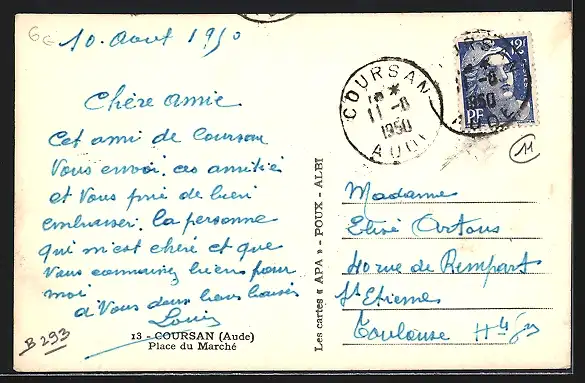 6€
10. Aout 1950
Chère amie
Cet ami de Coursan
Vous envoi ces amitiés
et vous prie de bien
embrasser la personne
qui m'est chéré et que
Vous connaissez bien pour
moi
à Vous deux bons baisés
Louis
B 293
13 - COURSAN (Aude)
Place du Marché
Les cartes « APA » - POUX - ALBI
COURSAN
11 -8
1950
AUDE
12F
POSTES
RF
-8
1950
AUDE
11
Madame
Elisé Artous
40 rue de Rempart
St Etienne
Toulouse Hte